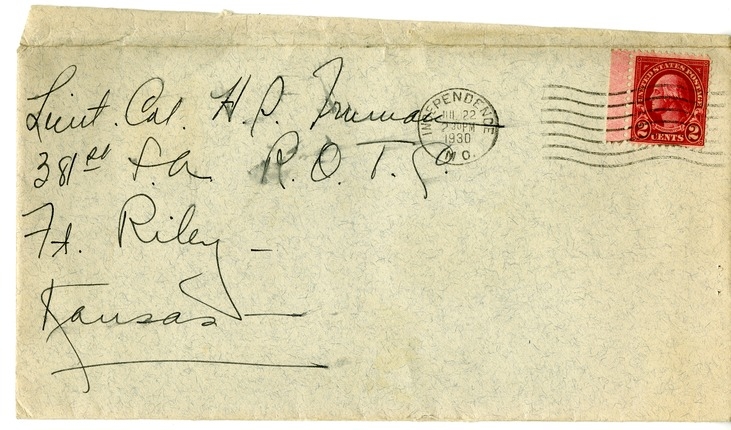 Lieut. Col. H. S. Truman
381st F.A. R.O.T.C.
Ft. Riley –
Kansas –
INDEPENDENCE
JUL 22
2 30 PM
1930
MO.
UNITED STATES POSTAGE
2 CENTS 2